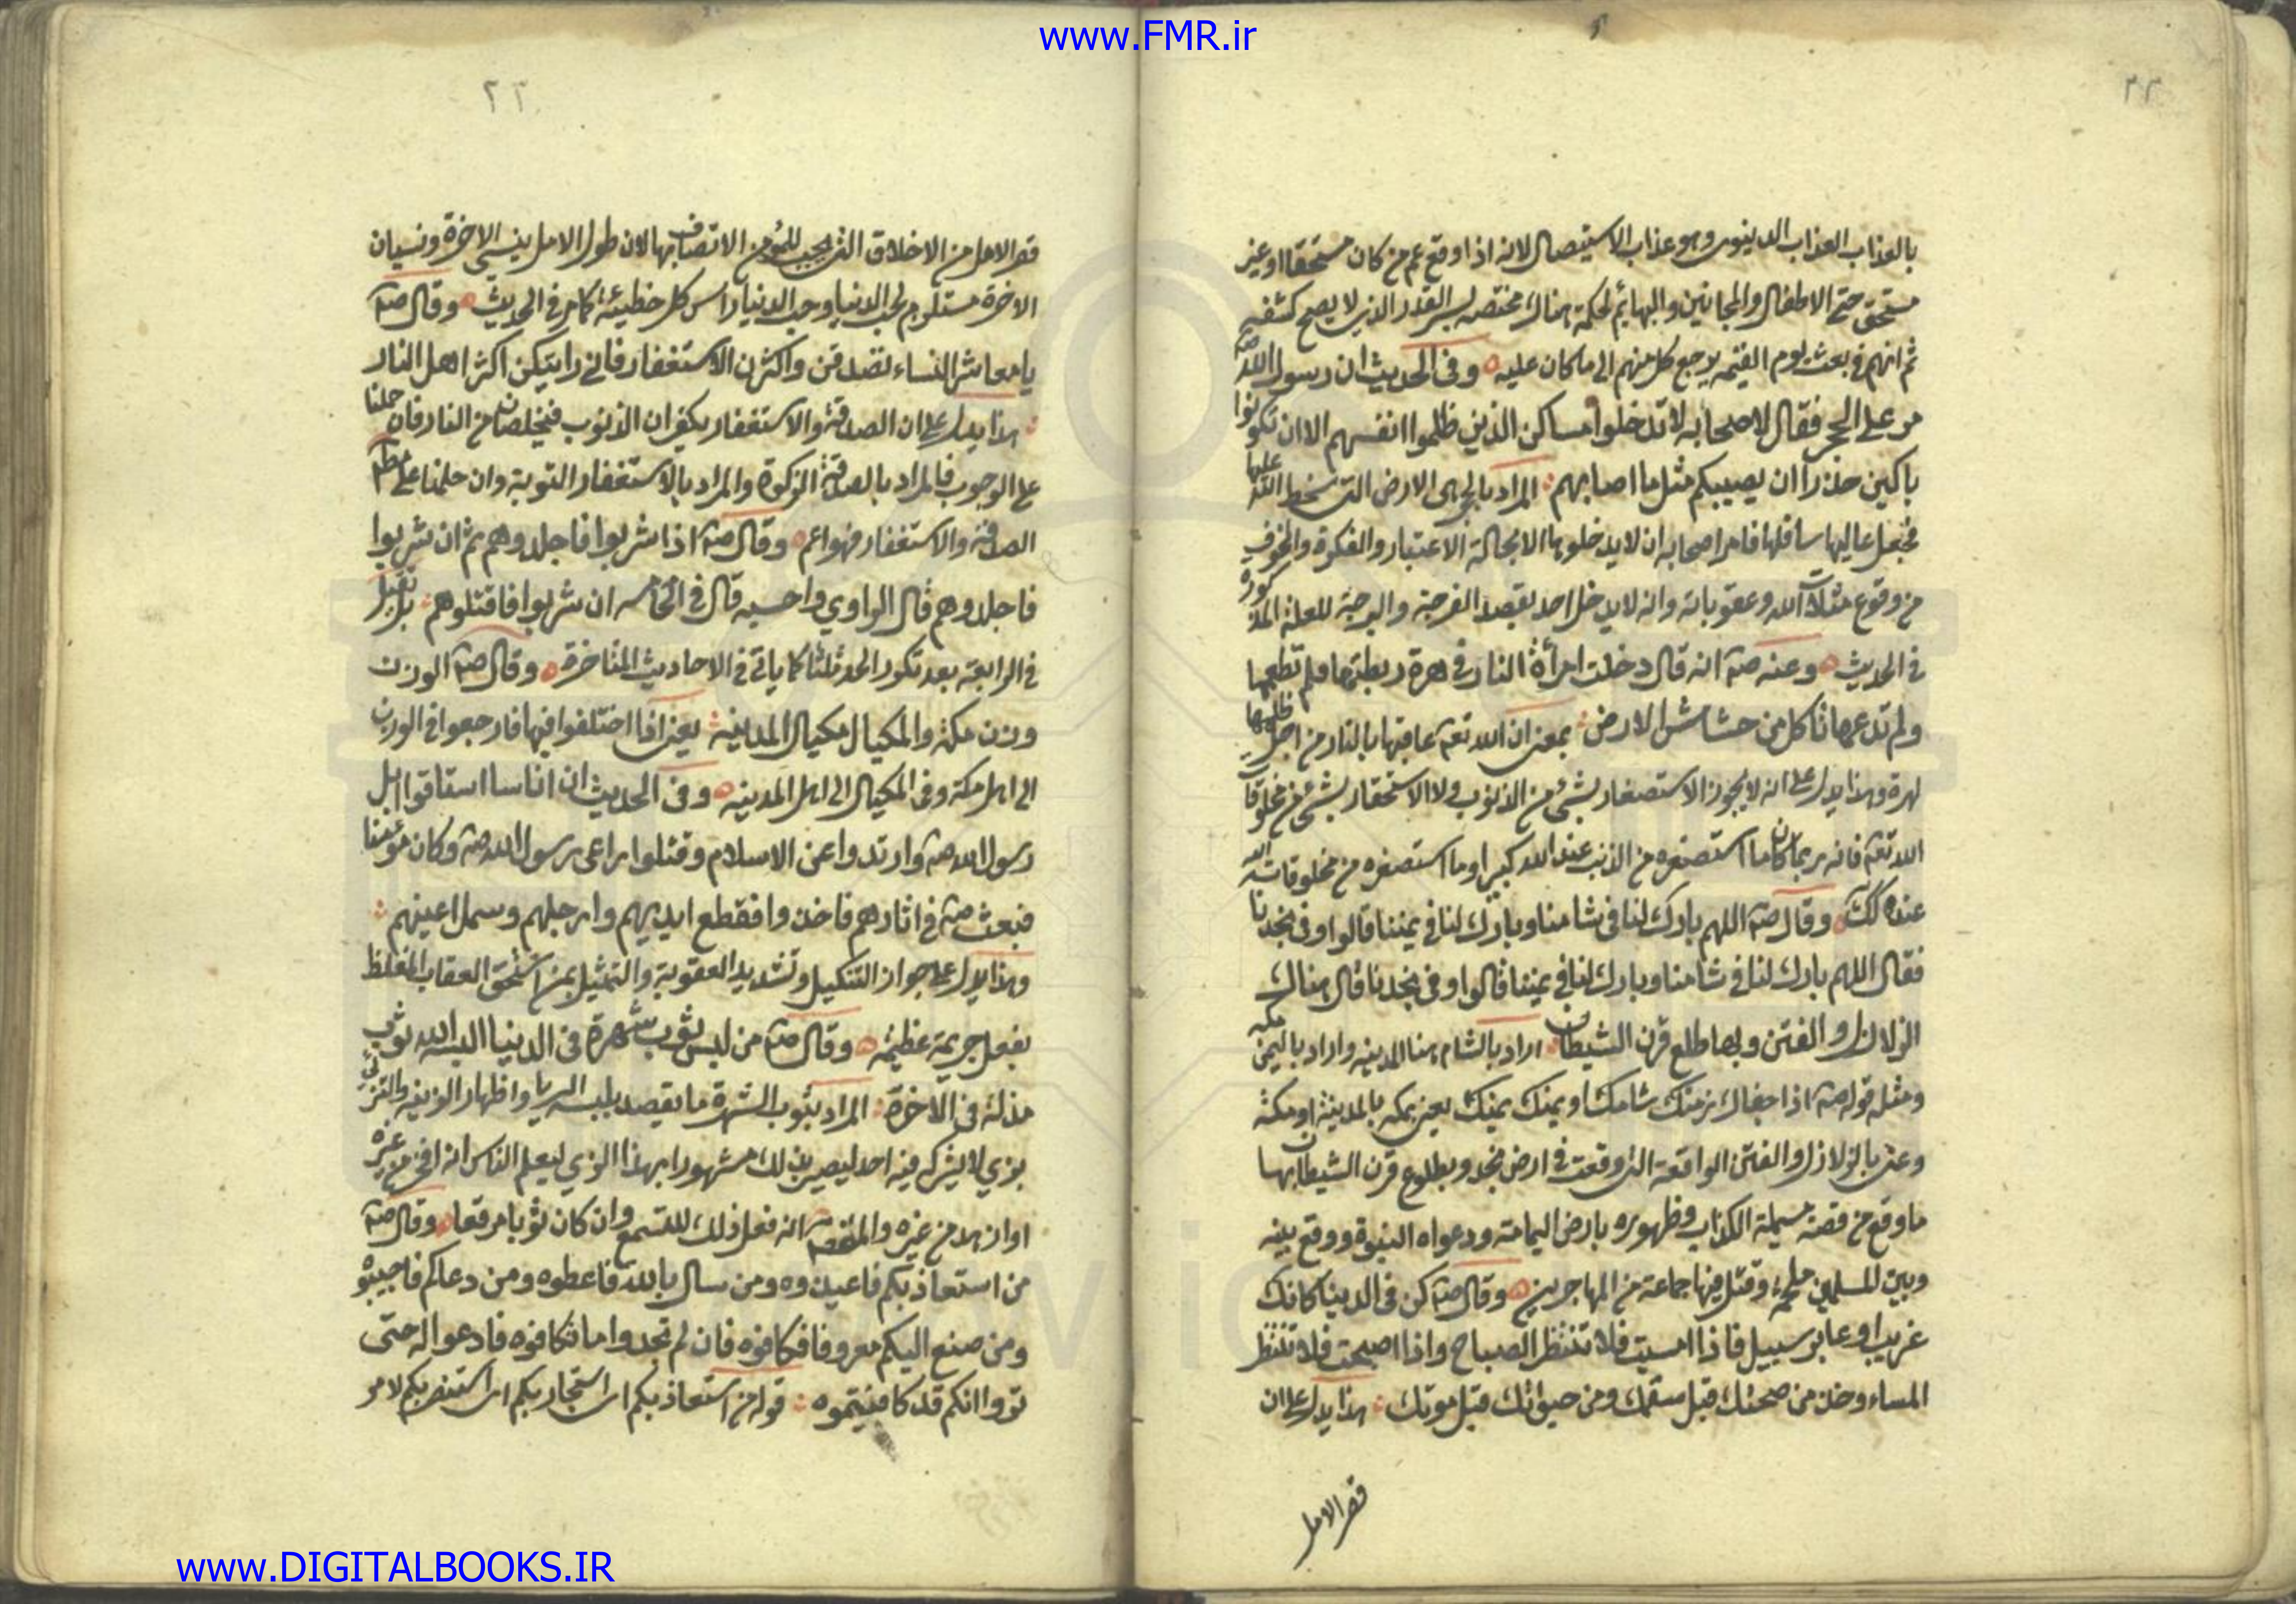 www.FMR.ir
٢٢
بالعذاب العذاب الدينوى وهو عذاب الاستيصال لانه اذا وقع عم من كان مستحقا او غير
مستحق حتى الاطفال والمجانين والبهائم لحكمة هناك مختصه بسر القدر الذى لا يصح كشفه
ثم انهم فى بعث يوم القيمه يرجع كل منهم الى ما كان عليه وفى الحديث ان رسول الله صه
مر على الحجر فقال لاصحابه لا تدخلوا مساكن الذين ظلموا انفسهم الا ان تكونوا
باكين حذرا ان يصيبكم مثل ما اصابهم المراد بالحجر هى الارض التى سخط الله عليها
فجعل عاليها سافلها فامر اصحابه ان لا يدخلوها الا بحالة الاعتبار والفكرة والخوف
من وقوع مثلات الله وعقوباته وانه لا يدخل احد بقصد الفرجة و للعلة المذكورة
فى الحديث وعنه صه انه قال دخلت امرأة النار فى هرة ربطتها فلم تطعمها
ولم تدعها تاكل من حشاش الارض بمعنى ان الله تعه عاقبها بالنار من اجل ظلمها
لهرة وهذا يدل على انه لا يجوز الاستصغار بشئ من الذنوب ولا الاستحقار بشئ من مخلوقات
الله تعه فانه ربما كان ما استصغره من الذنب عند الله كبيرا وما استصغره من مخلوقات الله
عنده كك وقال صه اللهم بارك لنا فى شامنا وبارك لنا فى يمننا قالوا وفى نجدنا
فقال اللهم بارك لنا فى شامنا وبارك لنا فى يمننا قالوا وفى نجدنا قال هناك
الزلازل والفتن وبها طلع قرن الشيطان اراد بالشام هنا المدينه واراد باليمن مكه
ومثله قوله صه اذا شامك او يمنك يعنى بمكه بالمدينة او مكة
وعنى بالزلازل والفتن الواقعة التى وقعت فى ارض نجد وبطلوع قرن الشيطان بها
ما وقع من قصة مسيلمة الكذاب وظهوره بارض اليمامة ودعواه النبوة ووقع بينه
وبين المسلمين ملحمة وقتل فيها جماعة من المهاجرين وقال صه كن فى الدنيا كانك
غريب او عابر سبيل فاذا امسيت فلا تنتظر الصباح واذا اصبحت فلا تنتظر
المساء وخذ من صحتك قبل سقمك ومن حيوتك قبل موتك هذا يدل على ان
قصر الامل
٢٣
قصر الامل من الاخلاق التى يجب للمؤمن الاتصاف بها لان طول الامل ينسى الاخرة ونسيان
الاخرة مستلزم لحب الدنيا وحب الدنيا راس كل خطيئة كما مر فى الحديث وقال صه
يا معاشر النساء تصدقن واكثرن الاستغفار فانى رايتكن اكثر اهل النار
هذا يدل على ان الصدقة والاستغفار يكفران الذنوب فيخلصان من النار فان حملنا
على الوجوب فالمراد بالصدقة الزكوة والمراد بالاستغفار التوبة وان حملنا على مطلق
الصدقة والاستغفار فهو اعم وقال صه اذا شربوا فاجلدوهم ثم ان شربوا
فاجلدوهم قال الراوي واحسبه قال فى الخامسه ان شربوا فاقتلوهم بل يقتل
فى الرابعة بعد تكور الحد ثلثا كما ياتى فى الاحاديث المتاخرة وقال صه الوزن
وزن مكة والمكيال مكيال المدينة يعنى اذا اختلفوا فيها فارجعوا فى الوزن
الى اهل مكة وفى المكيال الى اهل المدينه وفى الحديث ان اناسا استاقوا ابل
رسول الله صه وارتدوا عن الاسلام وقتلوا راعى رسول الله صه وكان مؤمنا
فبعث صه فى اثارهم فاخذوا فقطع ايديهم وارجلهم وسمل اعينهم
وهذا يدل على جواز التنكيل وتشديد العقوبة والتمثيل بمن استحق العقاب المغلظ
بفعل جريمة عظيمة وقال صه من لبس ثوب شهرة فى الدنيا البسه الله ثوب
مذلة فى الاخرة المراد بثوب الشهرة ما يقصد بلبسه الريا واظهار الزينه والتزيي
بزي لا يشركه فيه احد ليصير بذلك مشهورا بهذا الزي ليعلم الناس انه افخر من غيره
او ازهد من غيره انه فعل ذلك للتسمع وان كان ثوبا مرقعا وقال صه
من استعاذ بكم فاعيذوه ومن سال بالله فاعطوه ومن دعاكم فاجيبوه
ومن صنع اليكم معروفا فكافوه فان لم تجدوا ما تكافوه فادعوا له حتى
تروا انكم قد كافيتموه قوله من استعاذ بكم اى استجار بكم اى استنصر بكم لامر
www.DIGITALBOOKS.IR